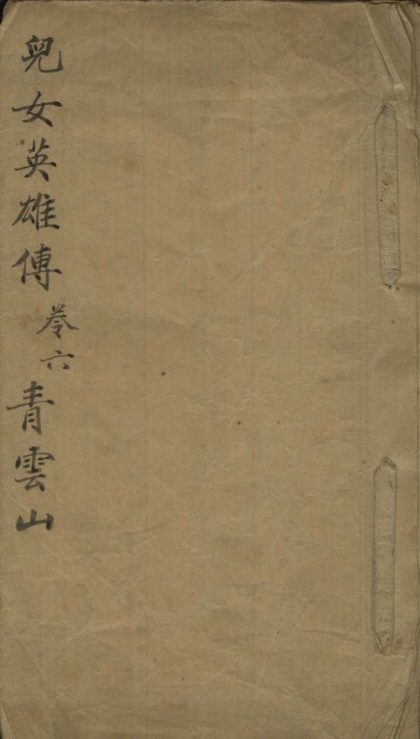 兒女英雄傳 卷六 青雲山